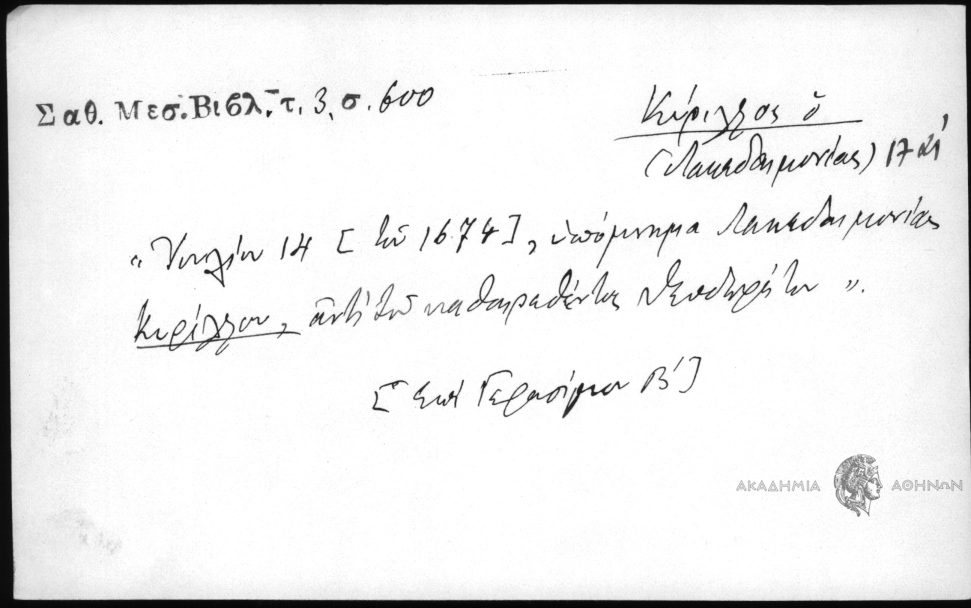 Σαθ. Μεσ. Βιβλ. τ. 3, σ. 600
Κύριλλος ὁ
(Λακεδαιμονίας) 17
« Ἰουλίου 14 [τοῦ 1674], ὑπόμνημα Λακεδαιμονίας
Κυρίλλου, ἀντὶ τοῦ καθαιρεθέντος Θεοδωρήτου ».
[ἐπὶ Γερασίμου Β']
ΑΚΑΔΗΜΙΑ ΑΘΗΝΩΝ